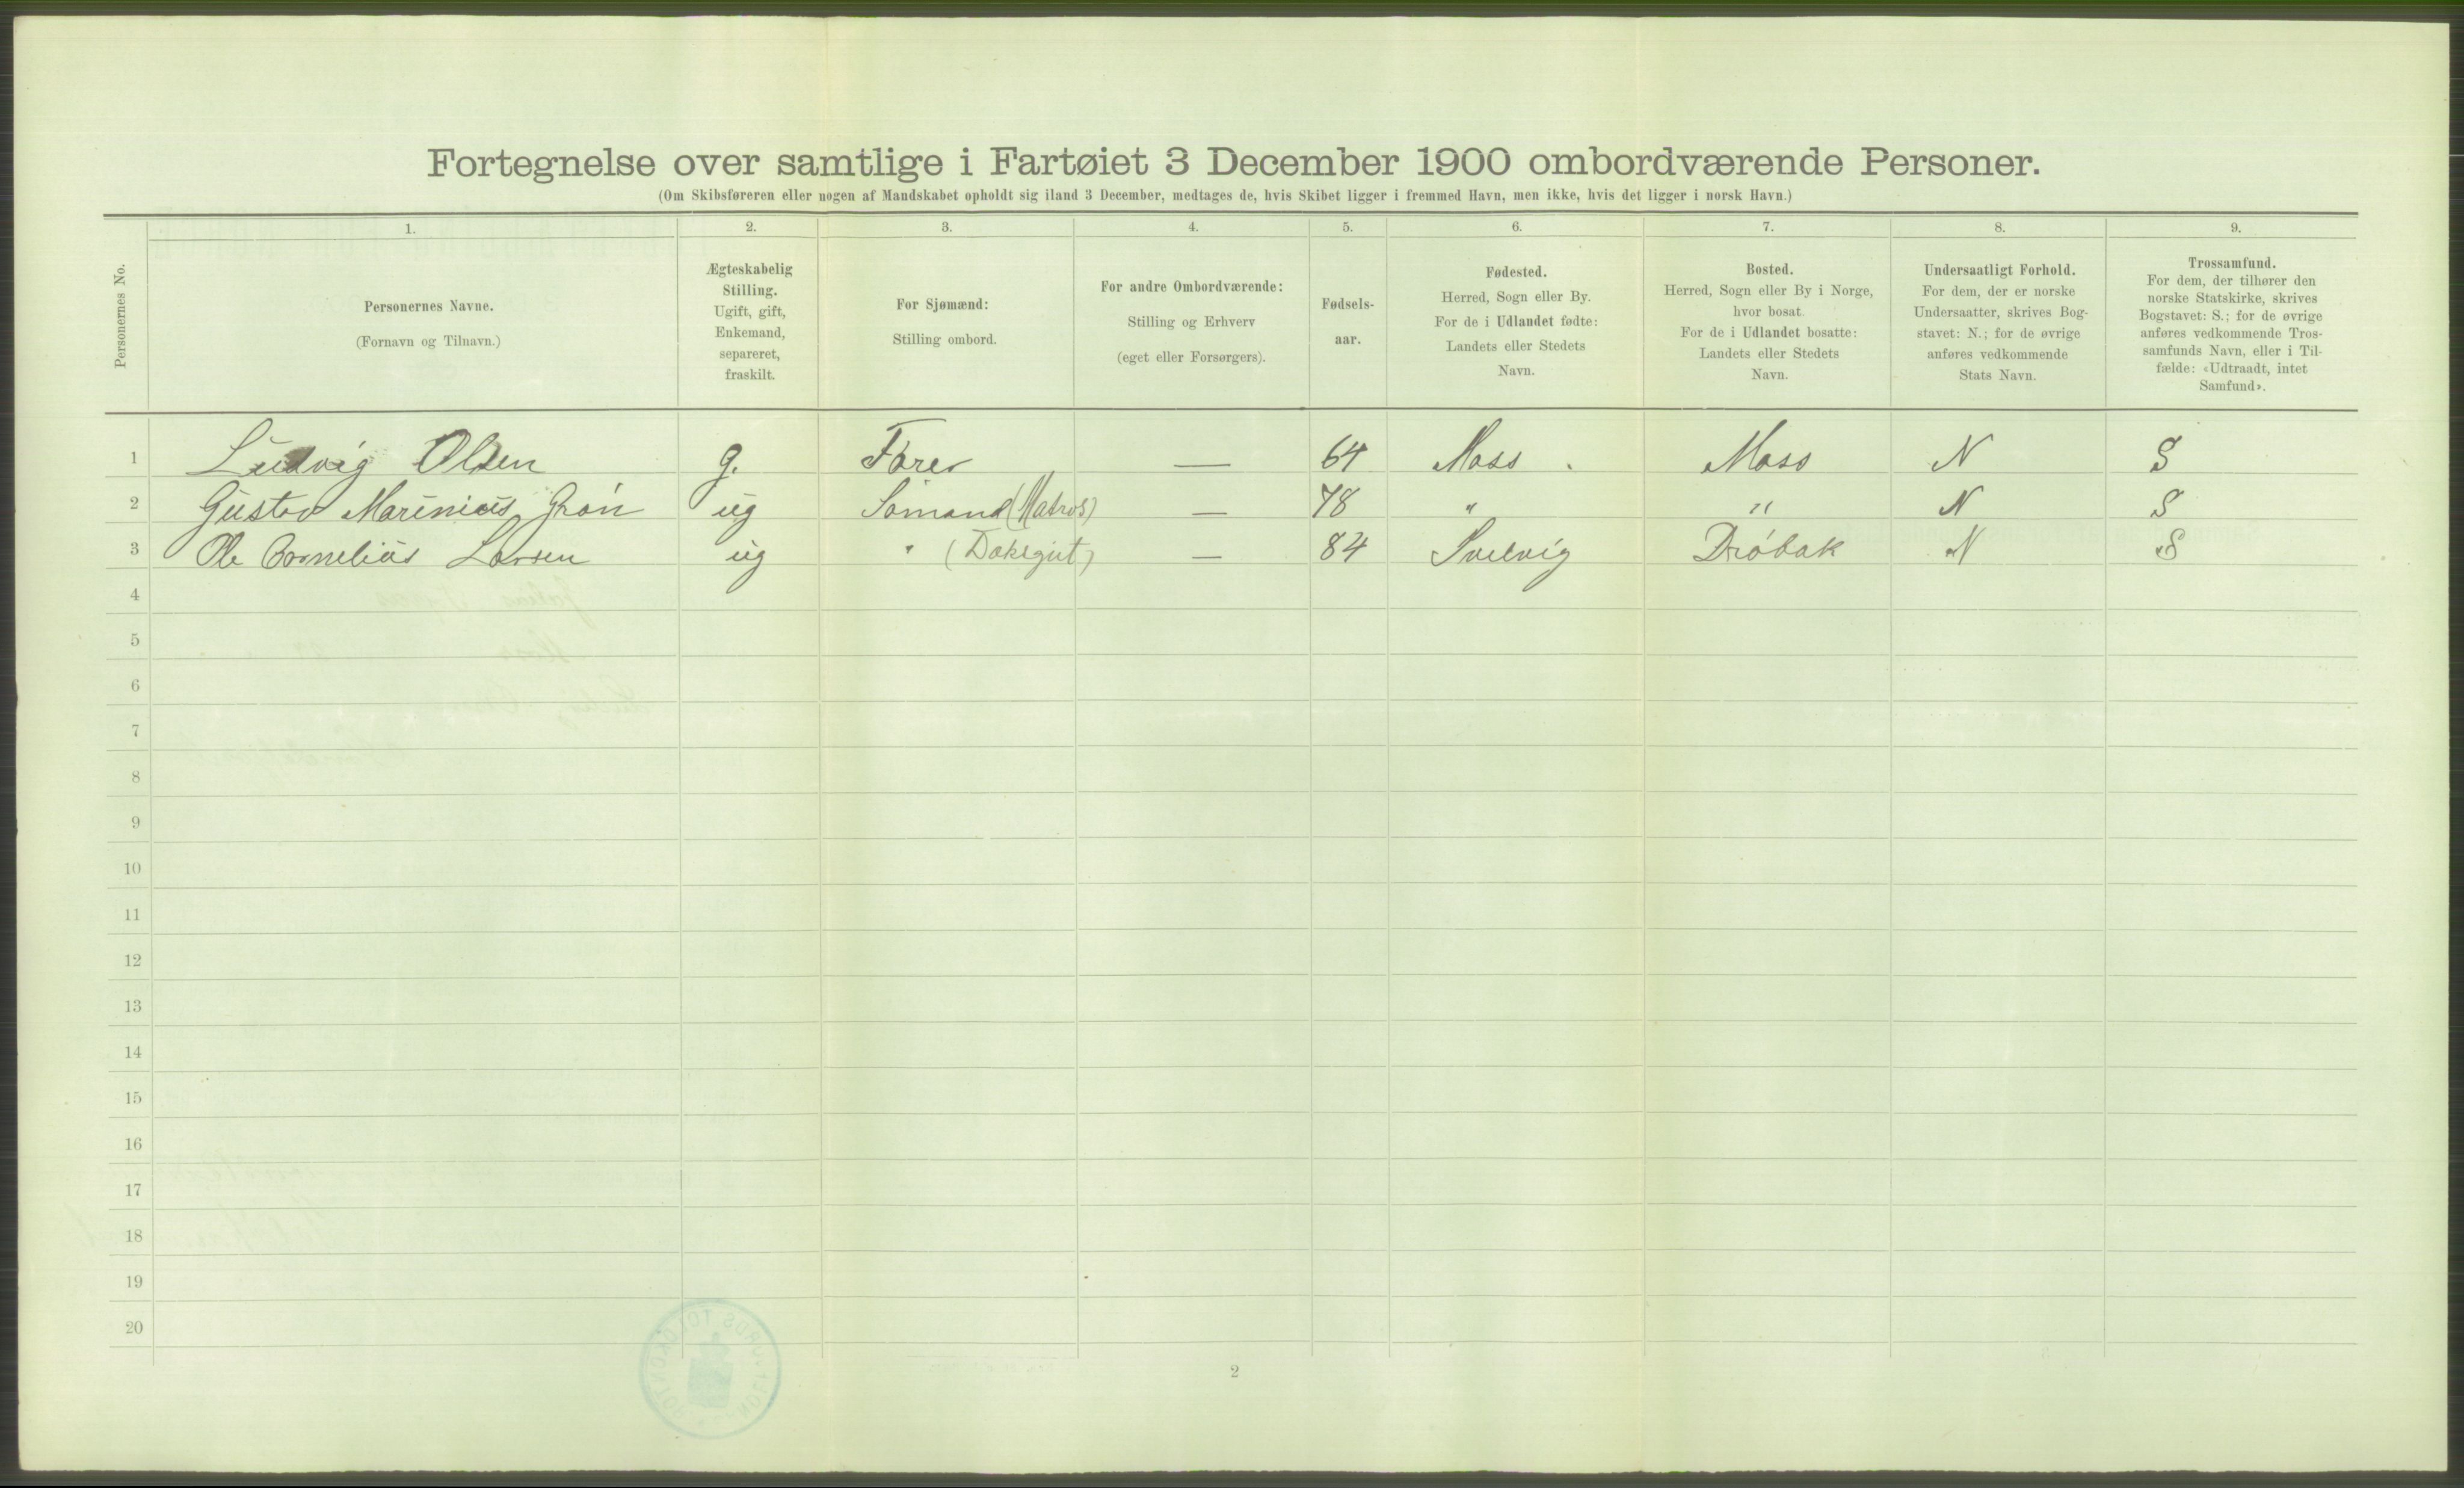 Fortegnelse over samtlige i Fartøiet 3 December 1900 ombordværende Personer.
(Om Skibsføreren eller nogen af Mandskabet opholdt sig iland 3 December, medtages de, hvis Skibet ligger i fremmed Havn, men ikke, hvis det ligger i norsk Havn.)
Personernes No.
1.
Personernes Navne.
(Fornavn og Tilnavn.)
2.
Ægteskabelig
Stilling.
Ugift, gift,
Enkemand,
separeret,
fraskilt.
3.
For Sjømænd:
Stilling ombord.
4.
For andre Ombordværende:
Stilling og Erhverv
(eget eller Forsørgers).
5.
Fødsels-
aar.
6.
Fødested.
Herred, Sogn eller By.
For de i Udlandet fødte:
Landets eller Stedets
Navn.
7.
Bosted.
Herred, Sogn eller By i Norge,
hvor bosat.
For de i Udlandet bosatte:
Landets eller Stedets
Navn.
8.
Undersaatligt Forhold.
For dem, der er norske
Undersaatter, skrives Bog-
stavet: N.; for de øvrige
anføres vedkommende
Stats Navn.
9.
Trossamfund.
For dem, der tilhører den
norske Statskirke, skrives
Bogstavet: S.; for de øvrige
anføres vedkommende Tros-
samfunds Navn, eller i Til-
fælde: «Udtraadt, intet
Samfund».
1 Ludvig Olsen g. Fører — 64 Moss . Moss N S
2 Gustav Marinius Grøn ug Sømand (Matros) — 78 " " N S
3 Ole Cornelius Larsen ug " (Dæksgut) — 84 Svelvig Drøbak N S
4
5
6
7
8
9
10
11
12
13
14
15
16
17
18
19
20
2